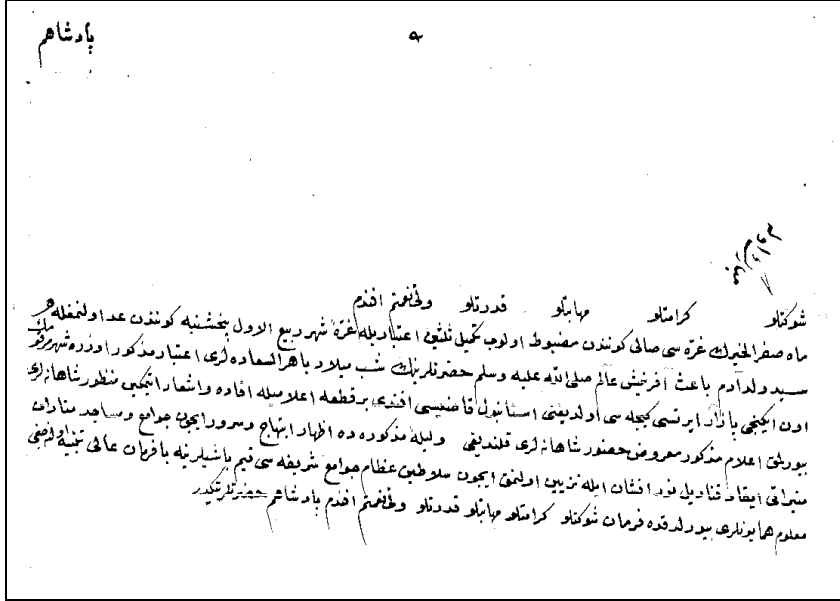 پادشاهم
شوكتلو كرامتلو مهابتلو قدرتلو ولينعمتم افندم
ماه صفر الخيرك غره سى صالى كونندن مضبوط اولوب تكميل ثلثين اعتباريله غرۀ شهر ربيع الاول پنجشنبه كونندن عد اولنمغله
سيد ولد آدم باعث آفرينش عالم صلى الله عليه وسلم حضرتلرينك شب ميلاد باهر السعاده لرى اعتبار مذكور اوزره شهر مرقومك
اون ايكنجى پازار ايرتسى كيجه سى اولديغنى استانبول قاضيسى افندى بر قطعه اعلاميله افاده واشعار ايتمكين منظور شاهانه لرى
بيورلمق اعلام مذكور معروض حضور شاهانه لرى قلنديغى وليلۀ مذكوره ده اظهار ابتهاج وسرور ايچون جوامع ومساجد مناراتى
منيراتى ايقاد قناديل نور افشان ايله تزيين اولنمق ايچون سلاطين عظام جوامع شريفه سى قيم باشيلرينه با فرمان عالى تنبيه
معلوم همايونلرى بيورلدقده فرمان شوكتلو كرامتلو مهابتلو قدرتلو ولينعمتم افندم پادشاهم حضرتلرينكدر